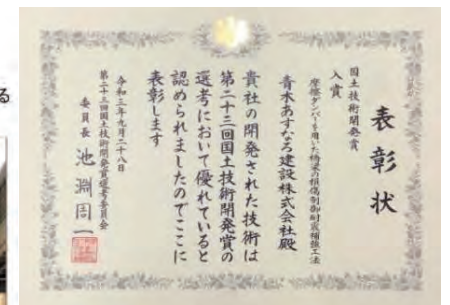 表彰状
国土技術開発賞
入賞
摩擦ダンパーを用いた橋梁の損傷制御耐震補強工法
青木あすなろ建設株式会社殿
貴社の開発された技術は
第二十三回国土技術開発賞の
選考において優れていると
認められましたのでここに
表彰します
令和三年九月二十八日
第二十三回国土技術開発賞選考委員会
委員長 池淵周一
る